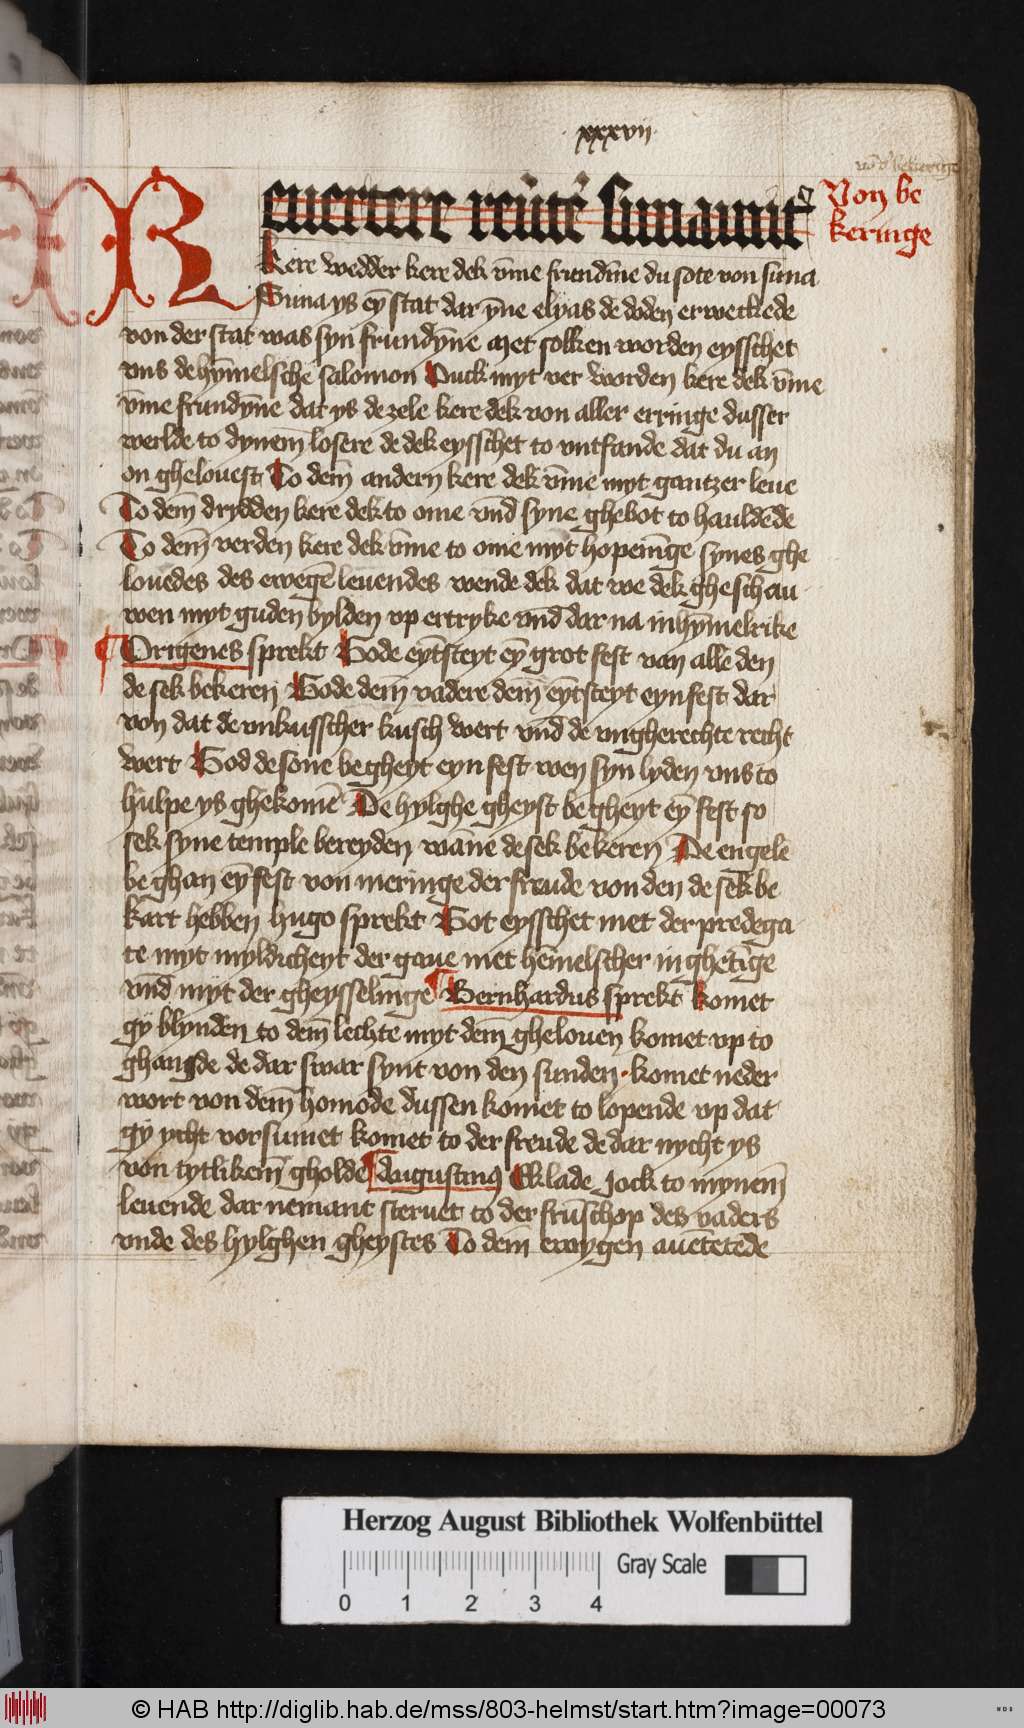 xxxvii
Von be
keringe
Reuertere reūtē sunamit
Kere wedder kere dek v̄me frundīne du sote von suna
Suna ys eȳ stat dar ȳne elyas de doden erweckede
von der stat was syn frundȳne Met solken worden eysschet
vns de hȳmelschē salomon Vuck myt ver worden kere dek v̄me
v̄me frundȳne dat ys de zele kere dek von aller erringe dusser
werlde to dynem̄ losere de dek eysschet to vntfande dat du an
on ghelouest To dem̄ andern kere dek v̄me myt gantzer leue
To dem̄ drydden kere dek to ome vn̄d syne ghebot to hauldēde
To dem̄ verden kere dek v̄me to ome myt hopenīge synes ghe
louedes des ewegē leuendes wende dek dat we dek gheschau
wen myt guden bylden vp ertryke vn̄d dar na in hȳmelrike
Origenes sprekt Gode eyt̄steyt eȳ grot fest van allē den
de sek bekeren Gode dem̄ vadere dem̄ eyt̄steyt eyn fest dar
von dat de vnkusscher kusch wert vn̄d de vngherechte recht
wert God de sone begheyt eyn fest wen syn lyden vns to
hulpe ys ghekomē De hylghe gheyst begheyt eȳ fest so
sek syne temple bereyden wāne de sek bekeren De engele
beghan eȳ fest von meringe der freude von den de sek be
kart hebben hugo sprekt Got eysschet met der predega
te myt myldicheyt der gaue met hēmelscher inghetīge
vn̄d myt der gheysselinge Bernhardus sprekt komet
gy blynden to dem̄ lechte myt dem̄ ghelouen komet vp to
ghande de dar swar synt von den sunden komet neder
wort von dem̄ homode dussen komet to lopende vp dat
gy ycht vorsumet komet to der freude de dar nycht ys
von tytlikem̄ gholde Augustinus Ek lade jock to mynem̄
leuende dar nemant steruet to der frūschop des vaders
vnde des hylghen gheystes To dem̄ ewygen auetetēde
Herzog August Bibliothek Wolfenbüttel
Gray Scale
0 1 2 3 4
© HAB http://diglib.hab.de/mss/803-helmst/start.htm?image=00073